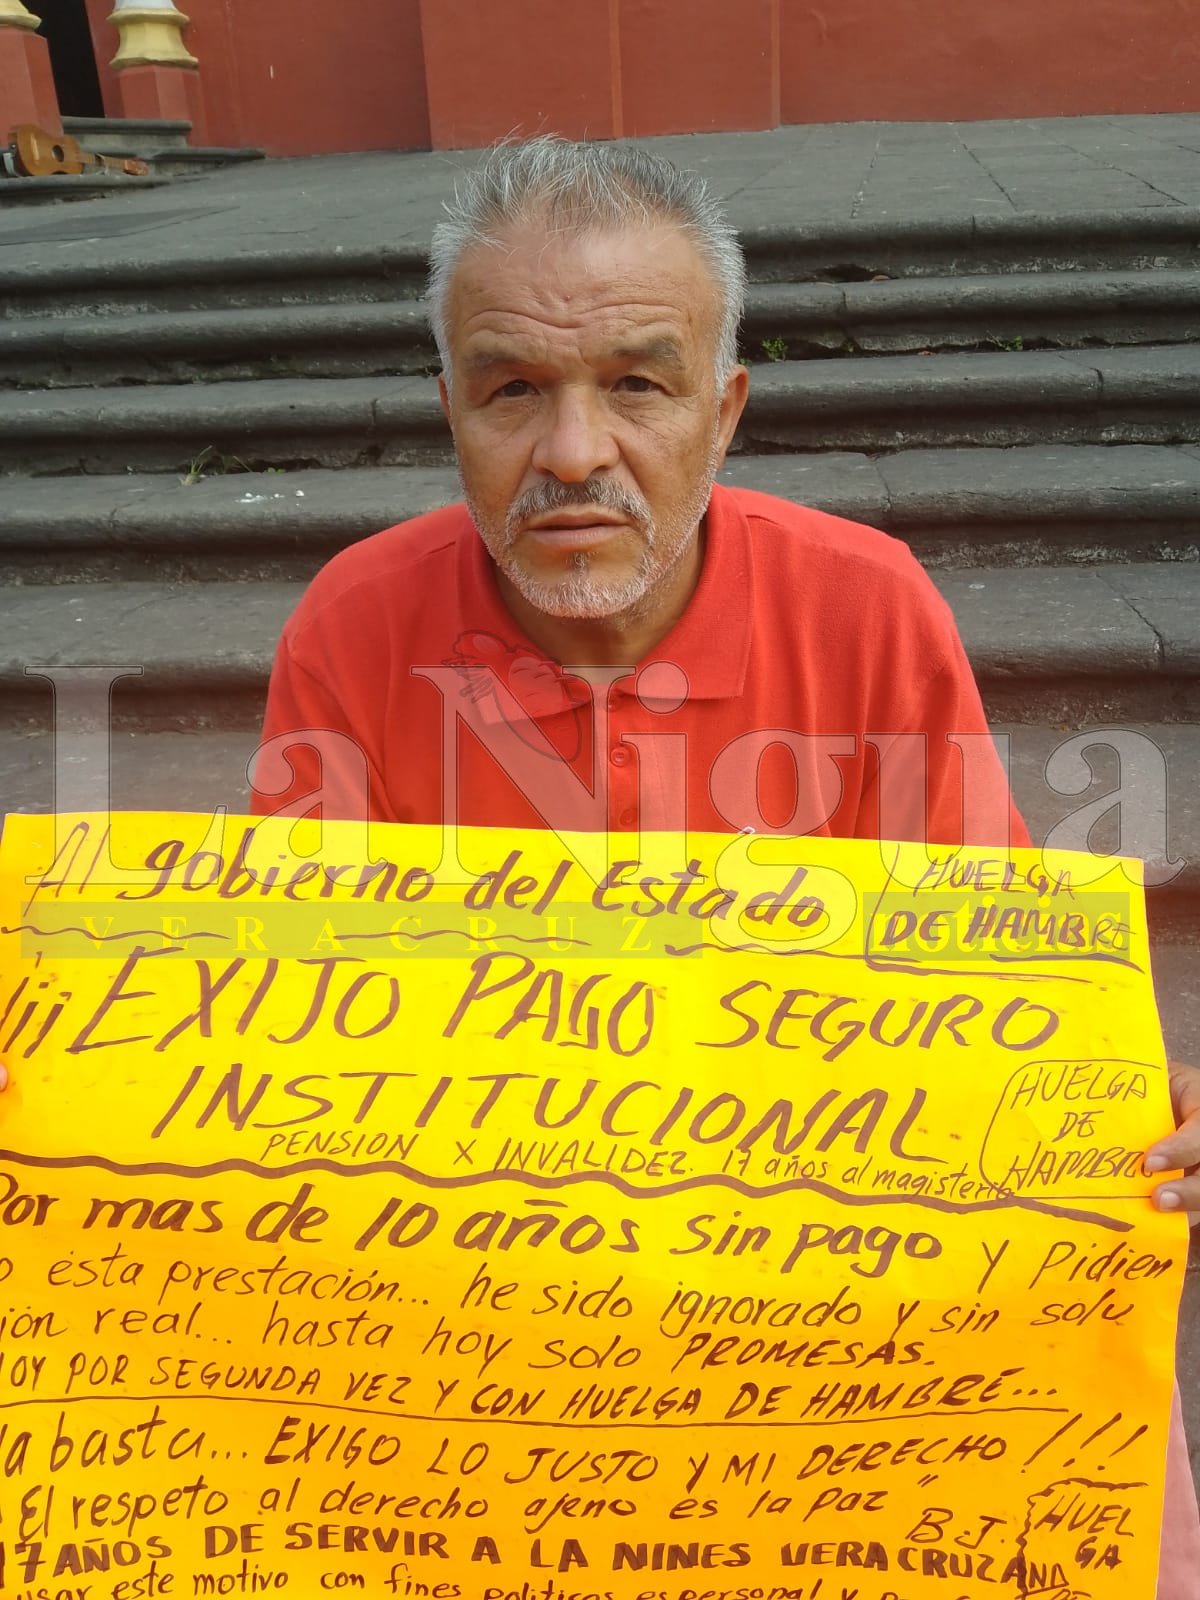 Al gobierno del Estado
HUELGA
DE HAMBRE
LaNigua
VERACRUZ noticias
¡¡¡EXIJO PAGO SEGURO
INSTITUCIONAL
PENSION X INVALIDEZ. 17 años al magisterio
HUELGA
DE
HAMBRE
Por mas de 10 años sin pago y pidien
o esta prestación... he sido ignorado y sin solu
ión real... hasta hoy solo PROMESAS.
OY POR SEGUNDA VEZ Y CON HUELGA DE HAMBRE...
Ya basta... EXIGO LO JUSTO Y MI DERECHO!!!
El respeto al derecho ajeno es la paz" B.J.
HUEL
GA
DE
17 AÑOS DE SERVIR A LA NINES VERACRUZANA
usar este motivo con fines politicos es personal y